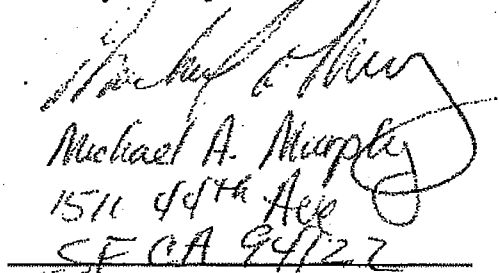 Michael A. Murphy
Michael A. Murphy
1511 44th Ave
SF CA 94122